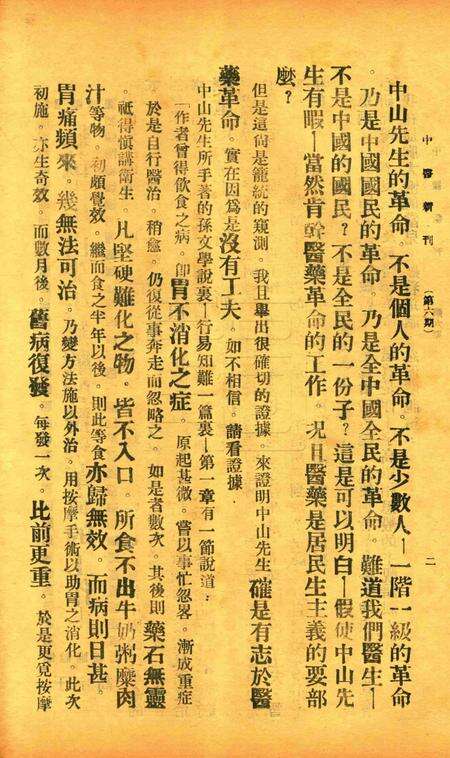 中醫新刊 (第六期) 二
中山先生的革命。不是個人的革命。不是少數人—一階一級的革命
。乃是中國國民的革命。乃是全中國全民的革命。難道我們醫生—
不是中國的國民?不是全民的一份子?這是可以明白—假使中山先
生有暇—當然肯幹醫藥革命的工作。况且醫藥是居民生主義的要部
麼?
但是這尙是籠統的窺測。我且舉出很確切的證據。來證明中山先生確是有志於醫
藥革命。實在因爲是沒有工夫。如不相信。請看證據
中山先生所手著的孫文學說裏—行易知難一篇裏—第一章有一節說道:
「作者曾得飲食之病。卽胃不消化之症。原起甚微。嘗以事忙忽畧。漸成重症
於是自行醫治。稍愈。仍復從事奔走而忽略之。如是者數次。其後則藥石無靈
。祗得愼講衛生。凡堅硬難化之物。皆不入口。所食不出牛奶粥糜肉
汁等物。初頗覺效。繼而食之半年以後。則此等食亦歸無效。而病則日甚
胃痛頻來。幾無法可治。乃變方法施以外治。用按摩手術以助胃之消化。此次
初施。亦生奇效。而數月後。舊病復發。每發一次。比前更重。於是更覓按摩